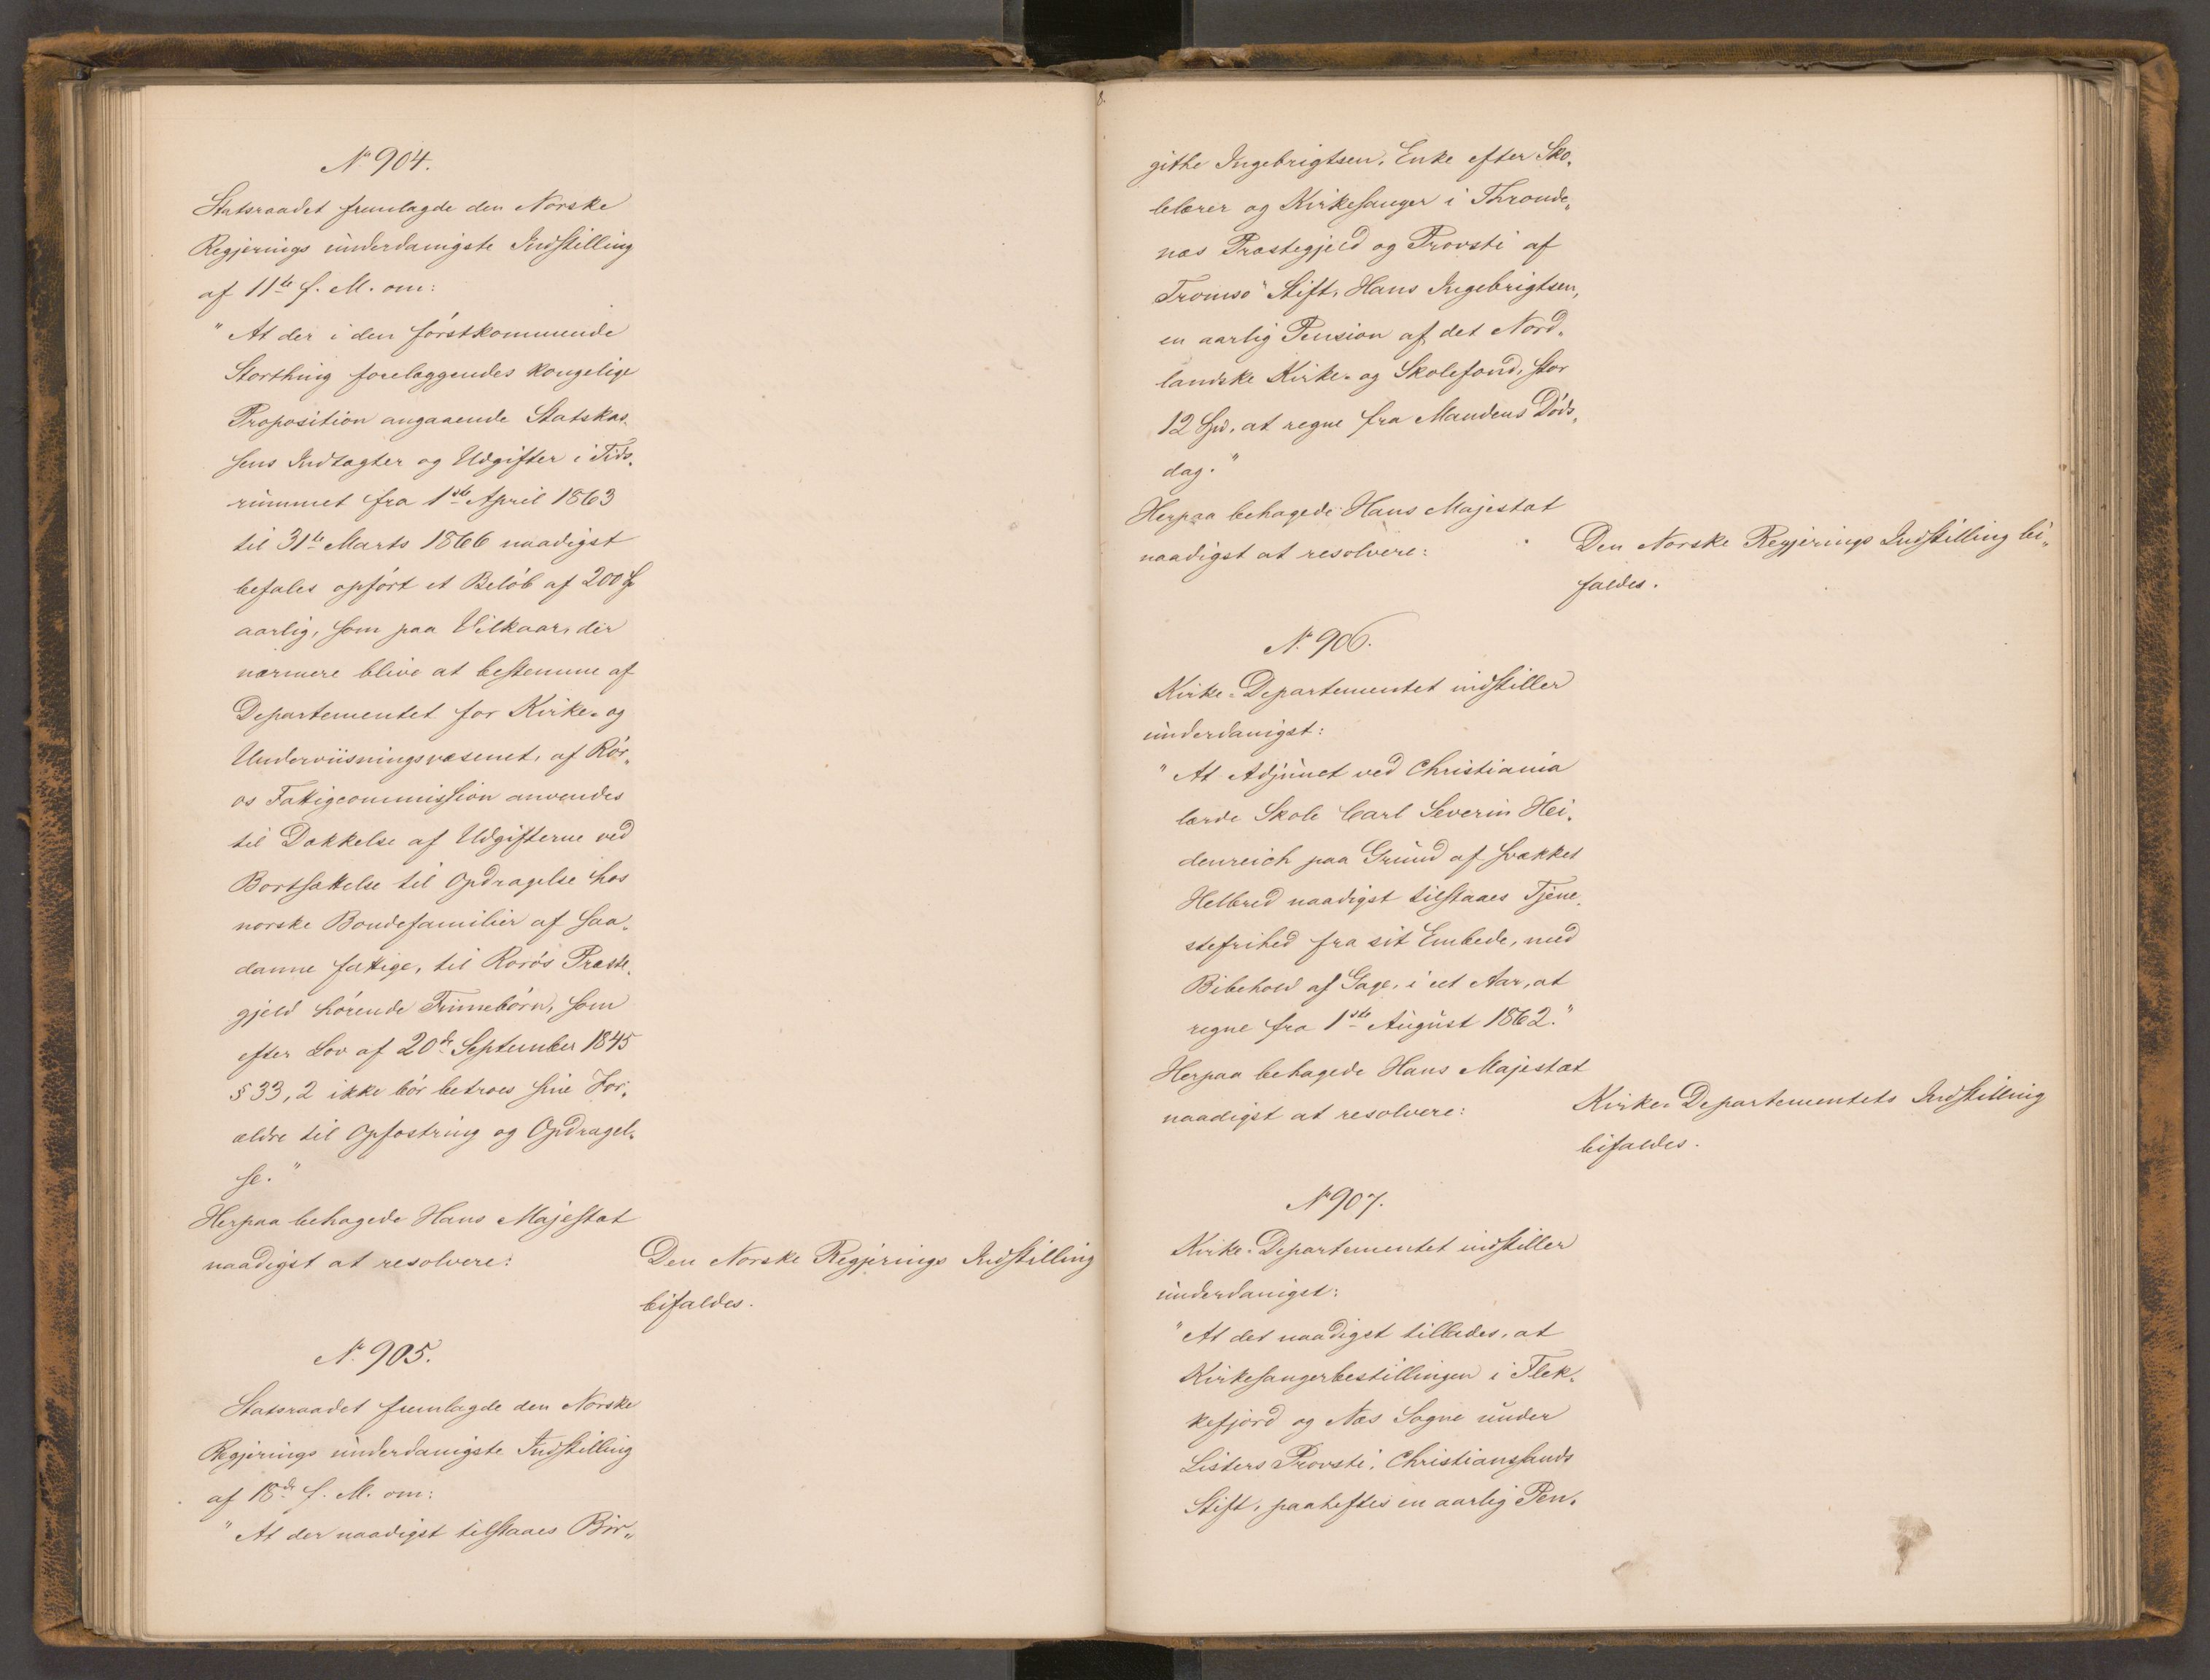 N° 904.
Statsraadet fremlagde den Norske
Regjerings underdanigste Indstilling
af 11te f. M. om:
"At der i den förstkommende
Storthing forelæggendes kongelige
Proposition angaaende Statskas-
sens Indtægter og Udgifter i Tids-
rummet fra 1ste April 1863
til 31te Marts 1866 naadigst
befales opfört et Belöb af 200 Sp
aarlig, som paa Vilkaar, der
nærmere blive at bestemme af
Departementet for Kirke- og
Underviisningsvæsenet, af Rör-
os Fattigcommission anvendes
til Dækkelse af Udgifterne ved
Bortsættelse til Opdragelse hos
norske Bondefamilier af saa-
danne fattige, til Rörös Præste-
gjeld hörende Finnebörn, som
efter Lov af 20de September 1845
§ 33, 2 ikke bör betroes sine For-
ældre til Opfostring og Opdragel-
se."
Herpaa behagede Hans Majestæt
naadigst at resolvere:
Den Norske Regjerings Indstilling
bifaldes.
N° 905.
Statsraadet fremlagde den Norske
Regjerings underdanigste Indstilling
af 18de f. M. om:
"At der naadigst tilstaaes Bir-
8.
githe Ingebrigtsen, Enke efter Sko-
lelærer og Kirkesanger i Thronde-
næs Præstegjeld og Provsti af
Tromsö Stift, Hans Ingebrigtsen,
en aarlig Pension af det Nord-
landske Kirke- og Skolefond, stor
12 Spd, at regne fra Mandens Döds-
dag."
Herpaa behagede Hans Majestæt
naadigst at resolvere:
Den Norske Regjerings Indstilling bi-
faldes.
N° 906.
Kirke-Departementet indstiller
underdanigst:
"At Adjunct ved Christiania
lærde Skole Carl Severin Hei-
denreich paa Grund af svækket
Helbred naadigst tilstaaes Tjene-
stefrihed fra sit Embede, med
Bibehold af Gage, i eet Aar, at
regne fra 1ste August 1862."
Herpaa behagede Hans Majestæt
naadigst at resolvere:
Kirke-Departementets Indstilling
bifaldes.
N° 907.
Kirke-Departementet indstiller
underdanigst:
"At det naadigst tillades, at
Kirkesangerbestillingen i Flek-
kefjord og Næs Sogne under
Listers Provsti, Christianssands
Stift, paaheftes en aarlig Pen-